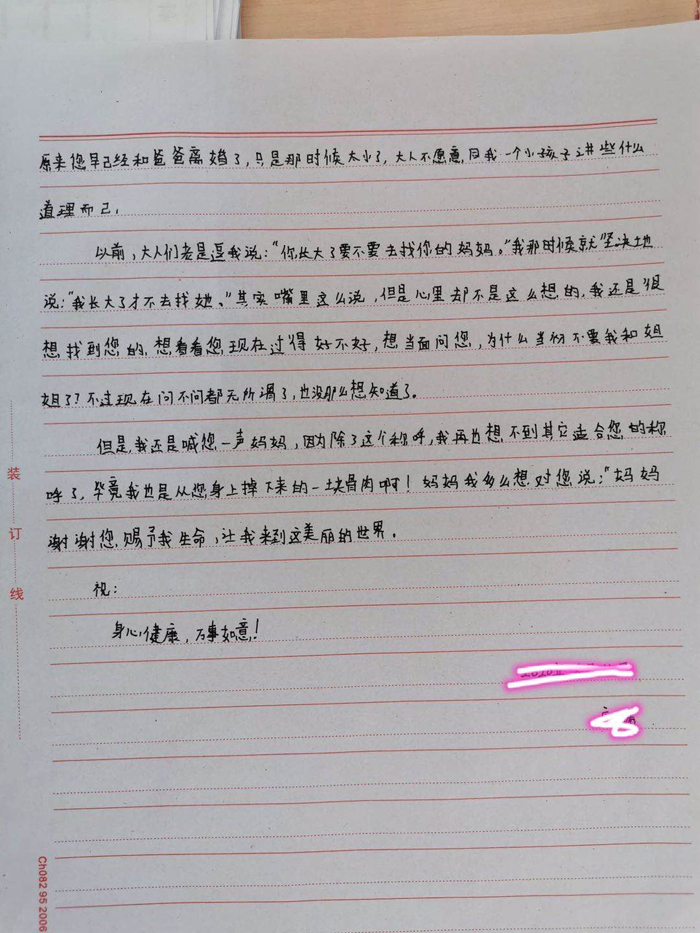 原来您早已经和爸爸离婚了，只是那时候太小了，大人不愿意同我一个小孩子讲些什么
道理而已。
以前，大人们老是逗我说：“你长大了要不要去找你的妈妈。”我那时候就“坚决地
说：“我长大了才不去找她、”其实嘴里这么说，但是心里却不是这么想的，我还是很
想找到您的，想看看您现在过得好不好，想当面问您，为什么当初不要我和姐
姐了？不过现在问不问都无所谓了，也没那么想知道了。
但是，我还是喊您一声妈妈，因为除了这个称呼，我再也想不到其它适合您的称
呼了，毕竟我也是从您身上掉下来的一块骨肉啊！妈妈我多么想对您说：“妈妈
谢谢您，赐予我生命，让我来到这美丽的世界。
祝：
身心健康，万事如意！
装
订
线
Ch082 95 2006